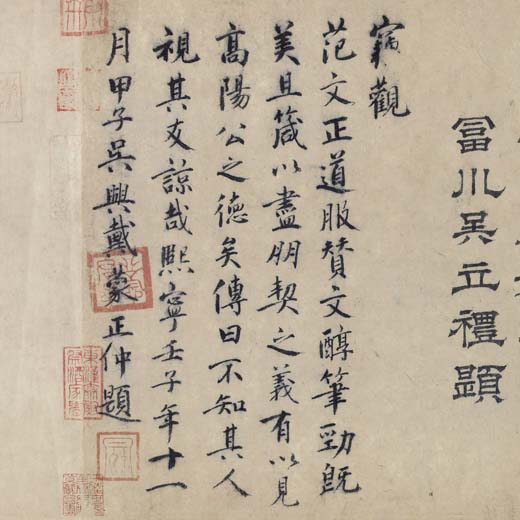 冨川吴立禮題
竊觀
范文正道服賛文醇筆勁旣
美且箴以盡朋契之義有以見
髙陽公之德矣傳曰不知其人
視其友諒哉熙寧壬子年十一
月甲子吴興戴蒙正仲題